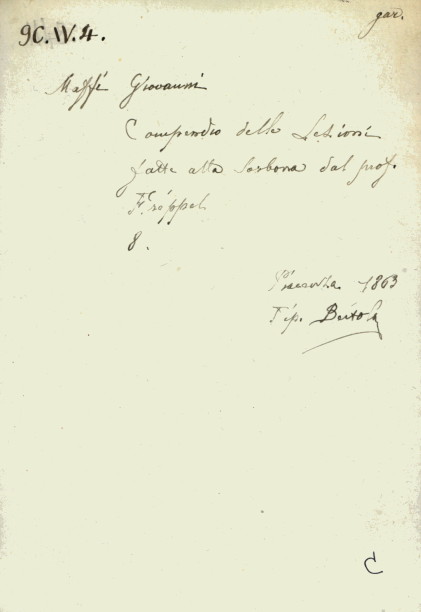 gar.
9C.IV.4.
Maffé Giovanni
Compendio delle Lezioni
fatte alla Sorbona dal prof.
Freppel
8.
Piacenza 1863
Tip. Bertola
C